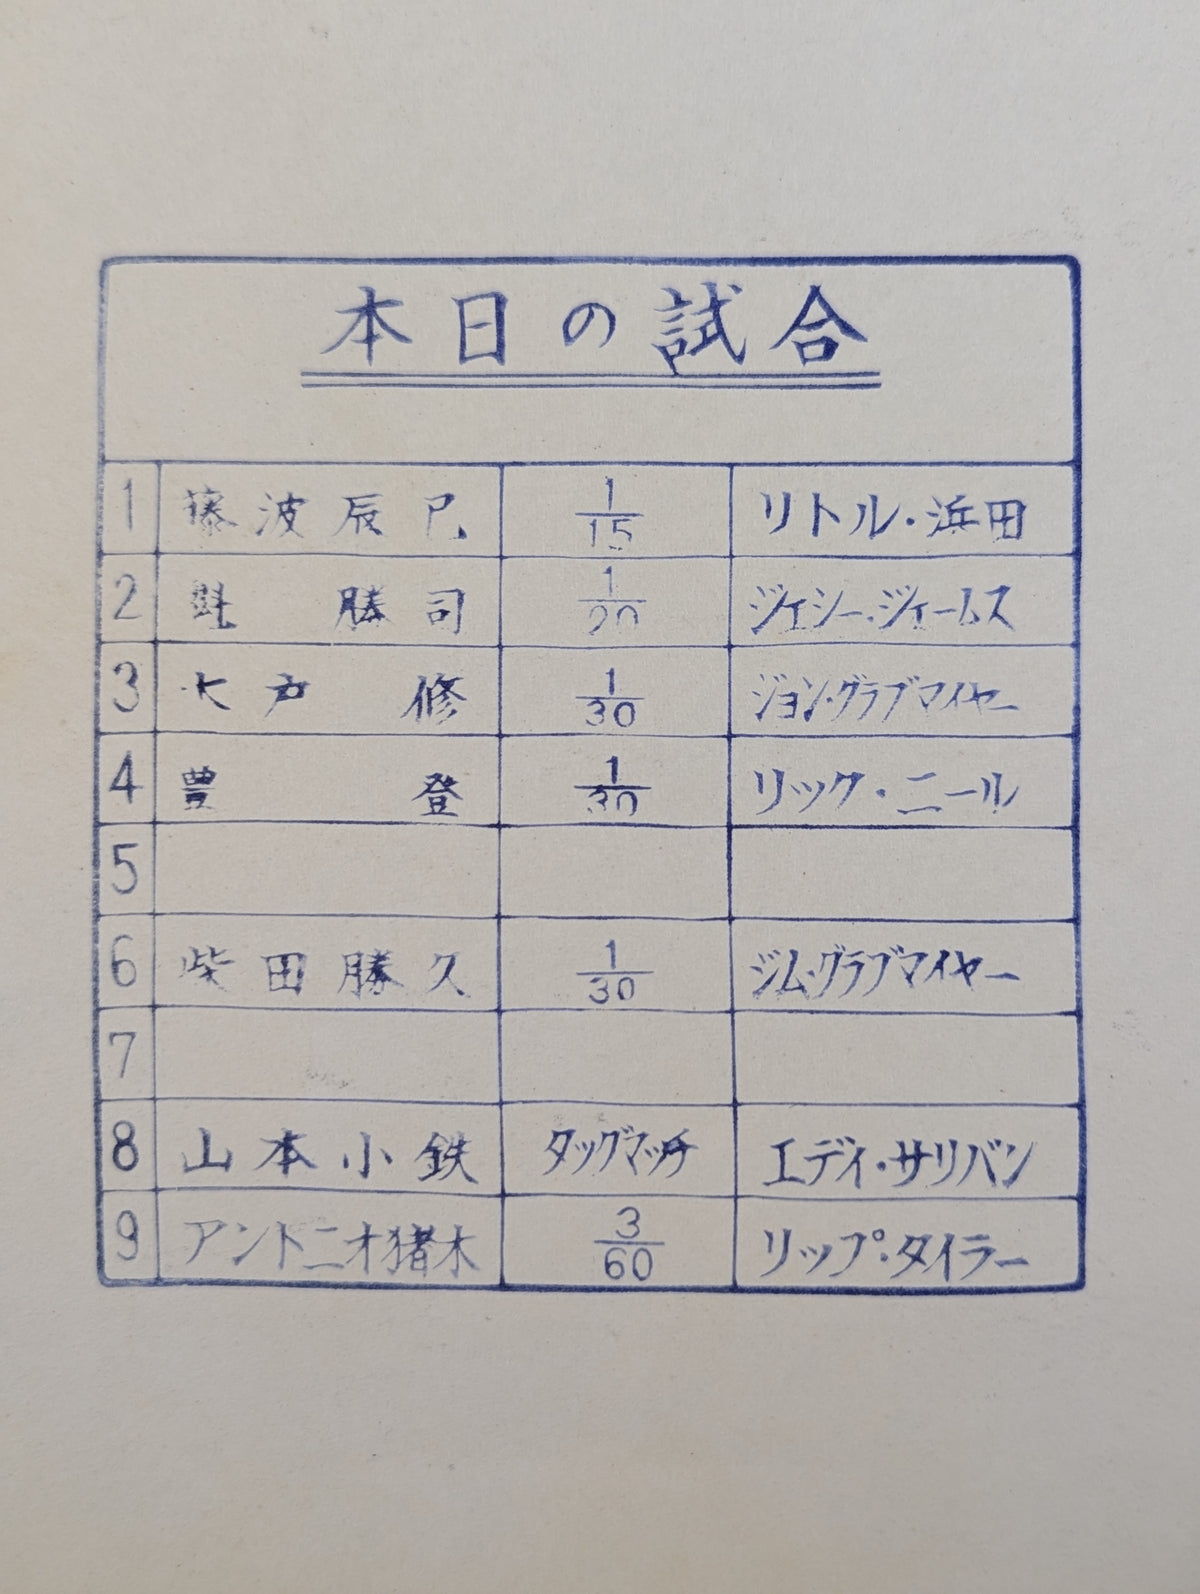 本日の試合
1 藤波辰巳 1/15 リトル・浜田
2 勝司 1/20 ジェシー・ジェームス
3 木戸修 1/30 ジョン・グラブマイヤー
4 豊登 1/30 リック・ニール
5
6 柴田勝久 1/30 ジム・グラブマイヤー
7
8 山本小鉄 タッグマッチ エディ・サリバン
9 アントニオ猪木 3/60 リップ・タイラー